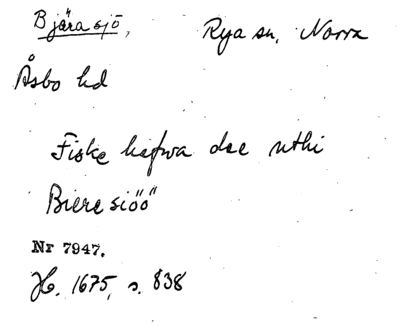 Bjärasjö, Rya sn, Norra
Åsbo hd
Fiske hafwa dee uthi
Biere siöö
Nr 7947.
JH. 1675, s. 838